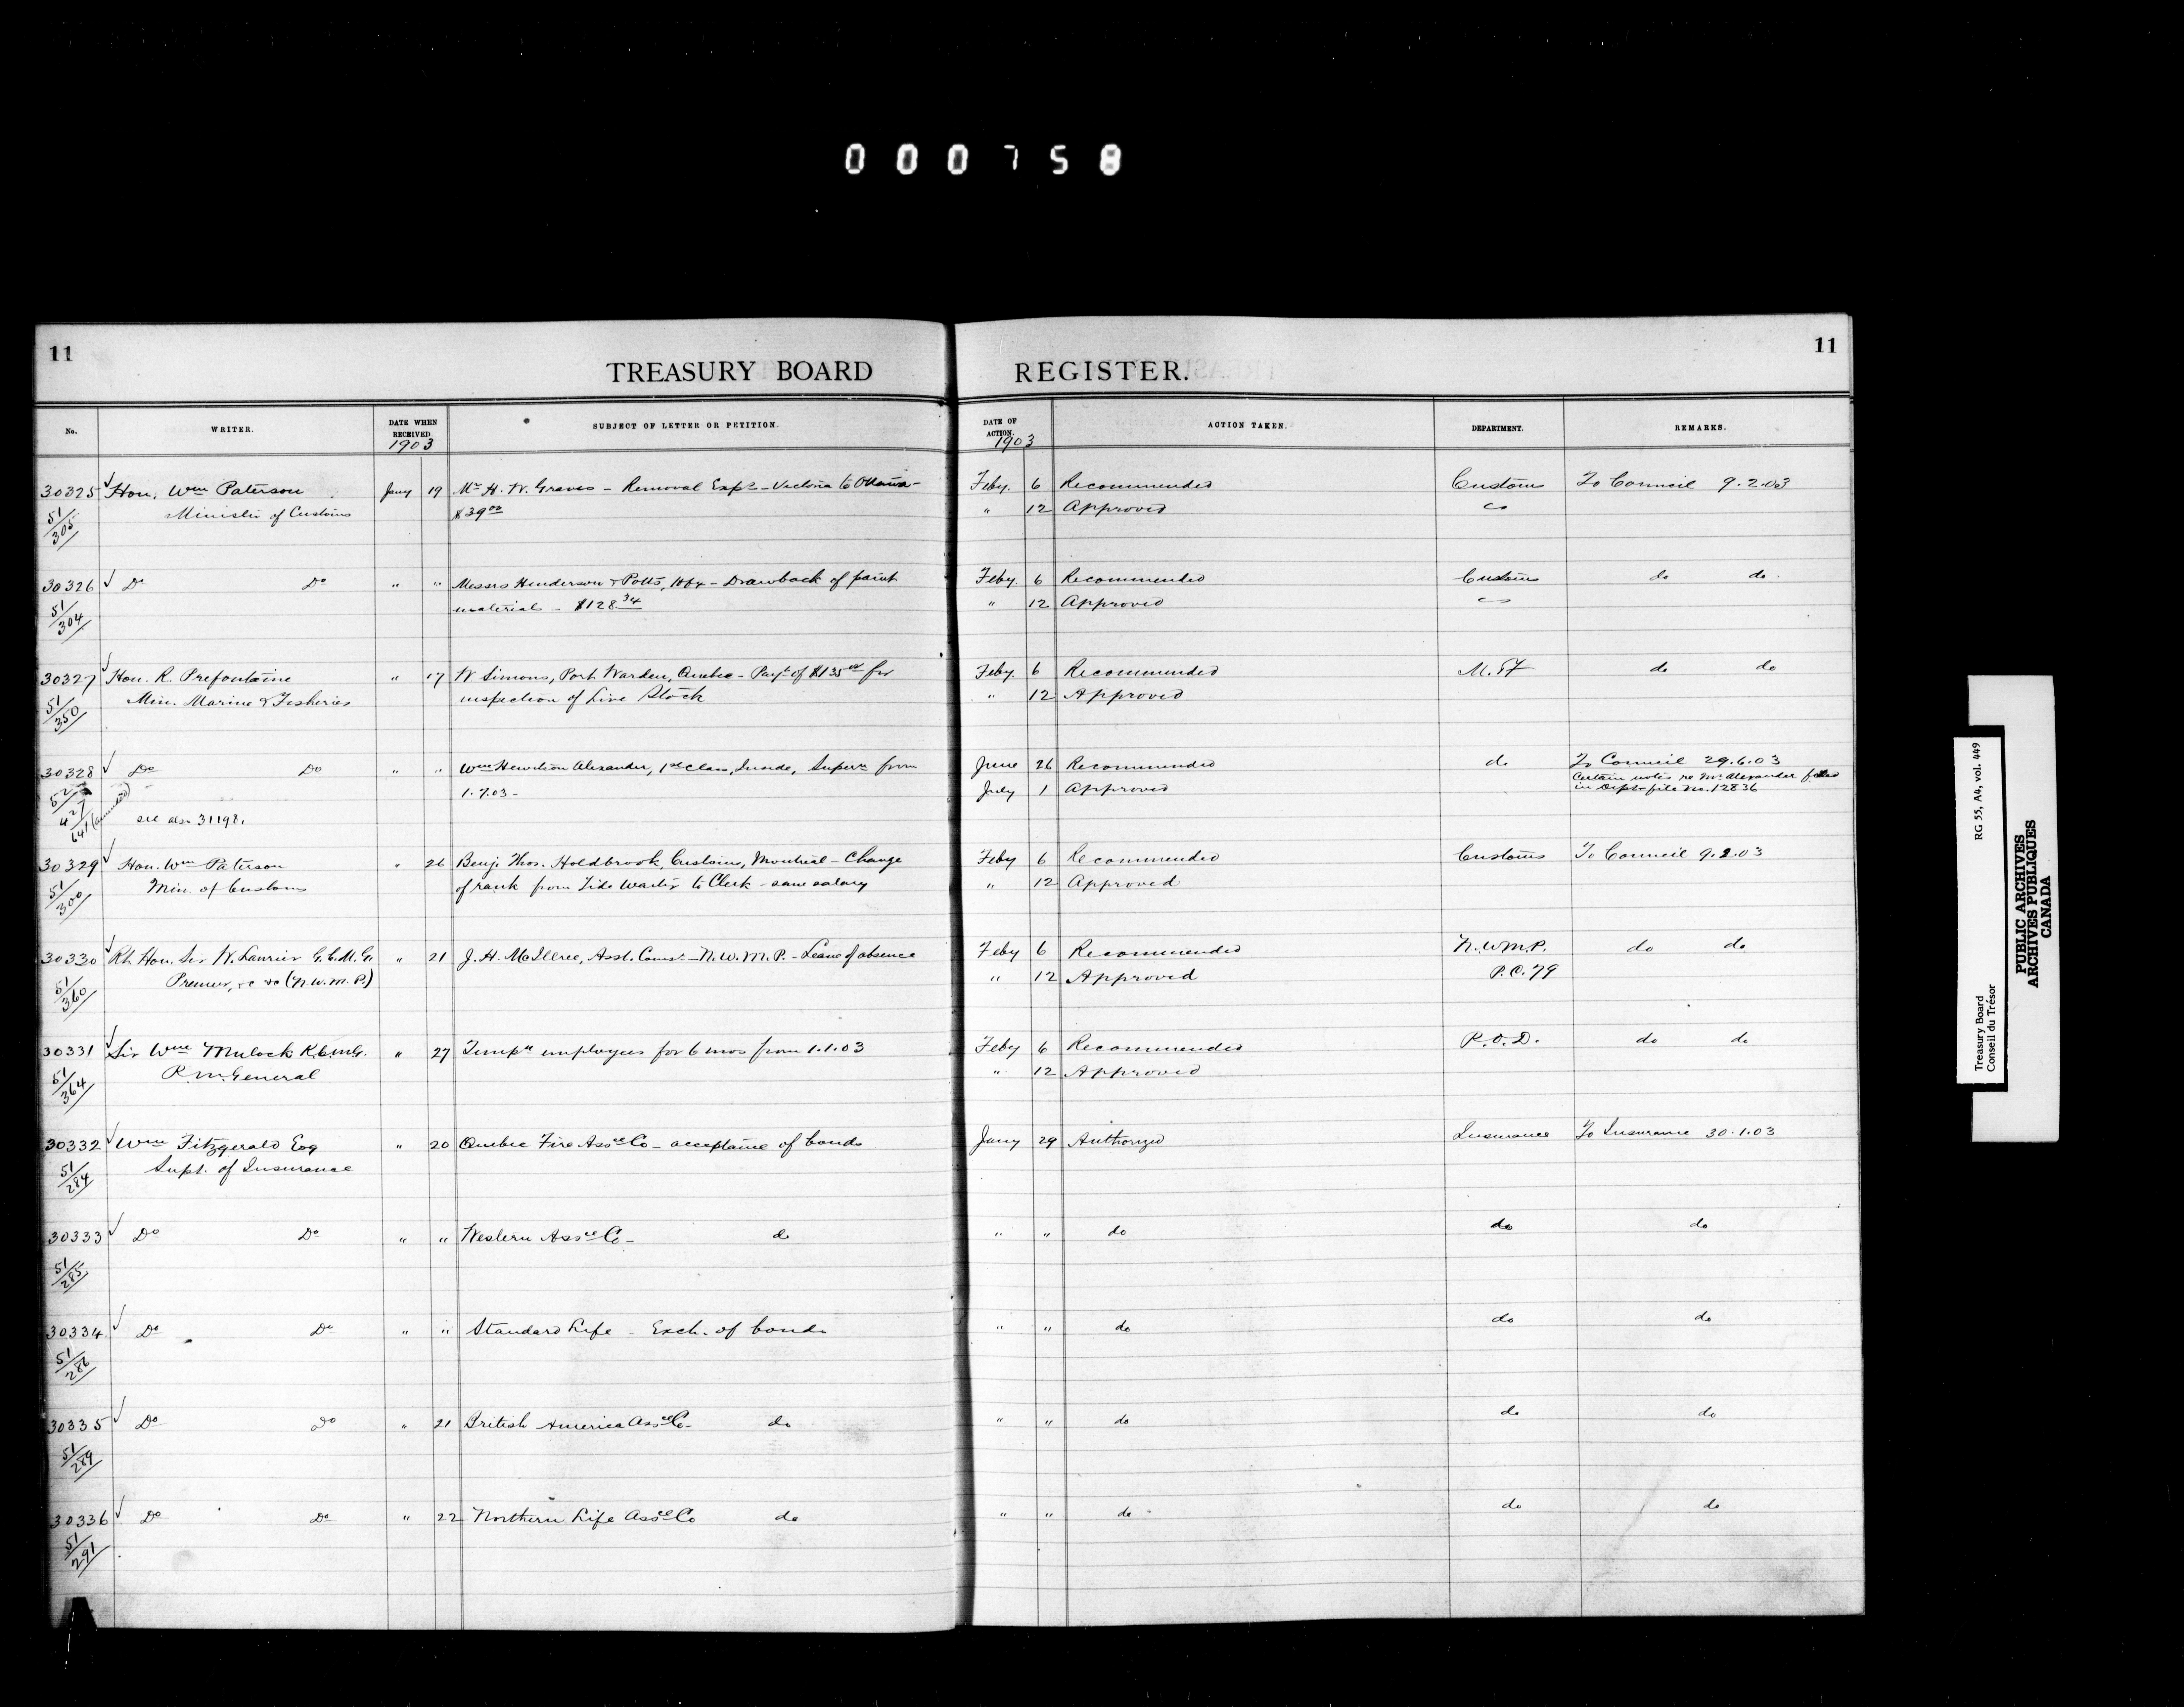 000758
11
TREASURY BOARD REGISTER.
11
No. WRITER. DATE WHEN RECEIVED. 1903 SUBJECT OF LETTER OR PETITION. DATE OF ACTION. 1903 ACTION TAKEN. DEPARTMENT. REMARKS.
30325 ✓ Hon. Wm Paterson Jany 19 Mr H. W. Graves - Removal Exps - Victoria to Ottawa - Feby. 6 Recommended Customs To Council 9.2.03
51/305 Minister of Customs $39.00 " 12 Approved
30326 ✓ Do Do " " Messrs Henderson & Potts, Hfx - Drawback of paint Feby. 6 Recommended Customs do do
51/304 material - $128.34 " 12 Approved
30327 ✓ Hon. R. Prefontaine " 17 W Simons, Port Warden, Quebec - Payt of $135.00 for Feby. 6 Recommended M. & F do do
51/350 Min. Marine & Fisheries inspection of Live Stock " 12 Approved
30328 ✓ Do Do " " Wm Hewitson Alexander, 1st Class, Inside, Supern from June 26 Recommended do To Council 29.6.03
52/427 1.7.03 - July 1 Approved Certain notes re Mr. Alexander filed
641 (amended) see also 31198. in Dept file No. 12836
30329 ✓ Hon. Wm Paterson " 26 Benj. Thos. Holdbrook, Customs, Montreal - Change Feby 6 Recommended Customs To Council 9.2.03
51/300 Min. of Customs of rank from Tide Waiter to Clerk - same salary " 12 Approved
30330 ✓ Rt. Hon. Sir W. Laurier G.C.M.G. " 21 J. H. McIllree, Asst. Comr. - N.W.M.P. - Leave of absence Feby 6 Recommended N.W.M.P. do do
51/360 Premier, &c &c (N.W.M.P.) " 12 Approved P.C. 79
30331 ✓ Sir Wm Mulock K.C.M.G. " 27 Tempy employees for 6 mos from 1.1.03 Feby 6 Recommended P.O.D. do do
51/364 P.M. General " 12 Approved
30332 ✓ Wm Fitzgerald Esq " 20 Quebec Fire Assce Co - acceptance of bonds Jany 29 Authorized Insurance To Insurance 30.1.03
51/284 Supt. of Insurance
30333 ✓ Do Do " " Western Assce Co - do " " do do do
51/285
30334 ✓ Do Do " " Standard Life - Exch. of bonds " " do do do
51/286
30335 ✓ Do Do " 21 British America Assce Co - do " " do do do
51/289
30336 ✓ Do Do " 22 Northern Life Assce Co do " " do do do
51/291
Treasury Board RG 55, A4, vol. 449
Conseil du Trésor
PUBLIC ARCHIVES
ARCHIVES PUBLIQUES
CANADA